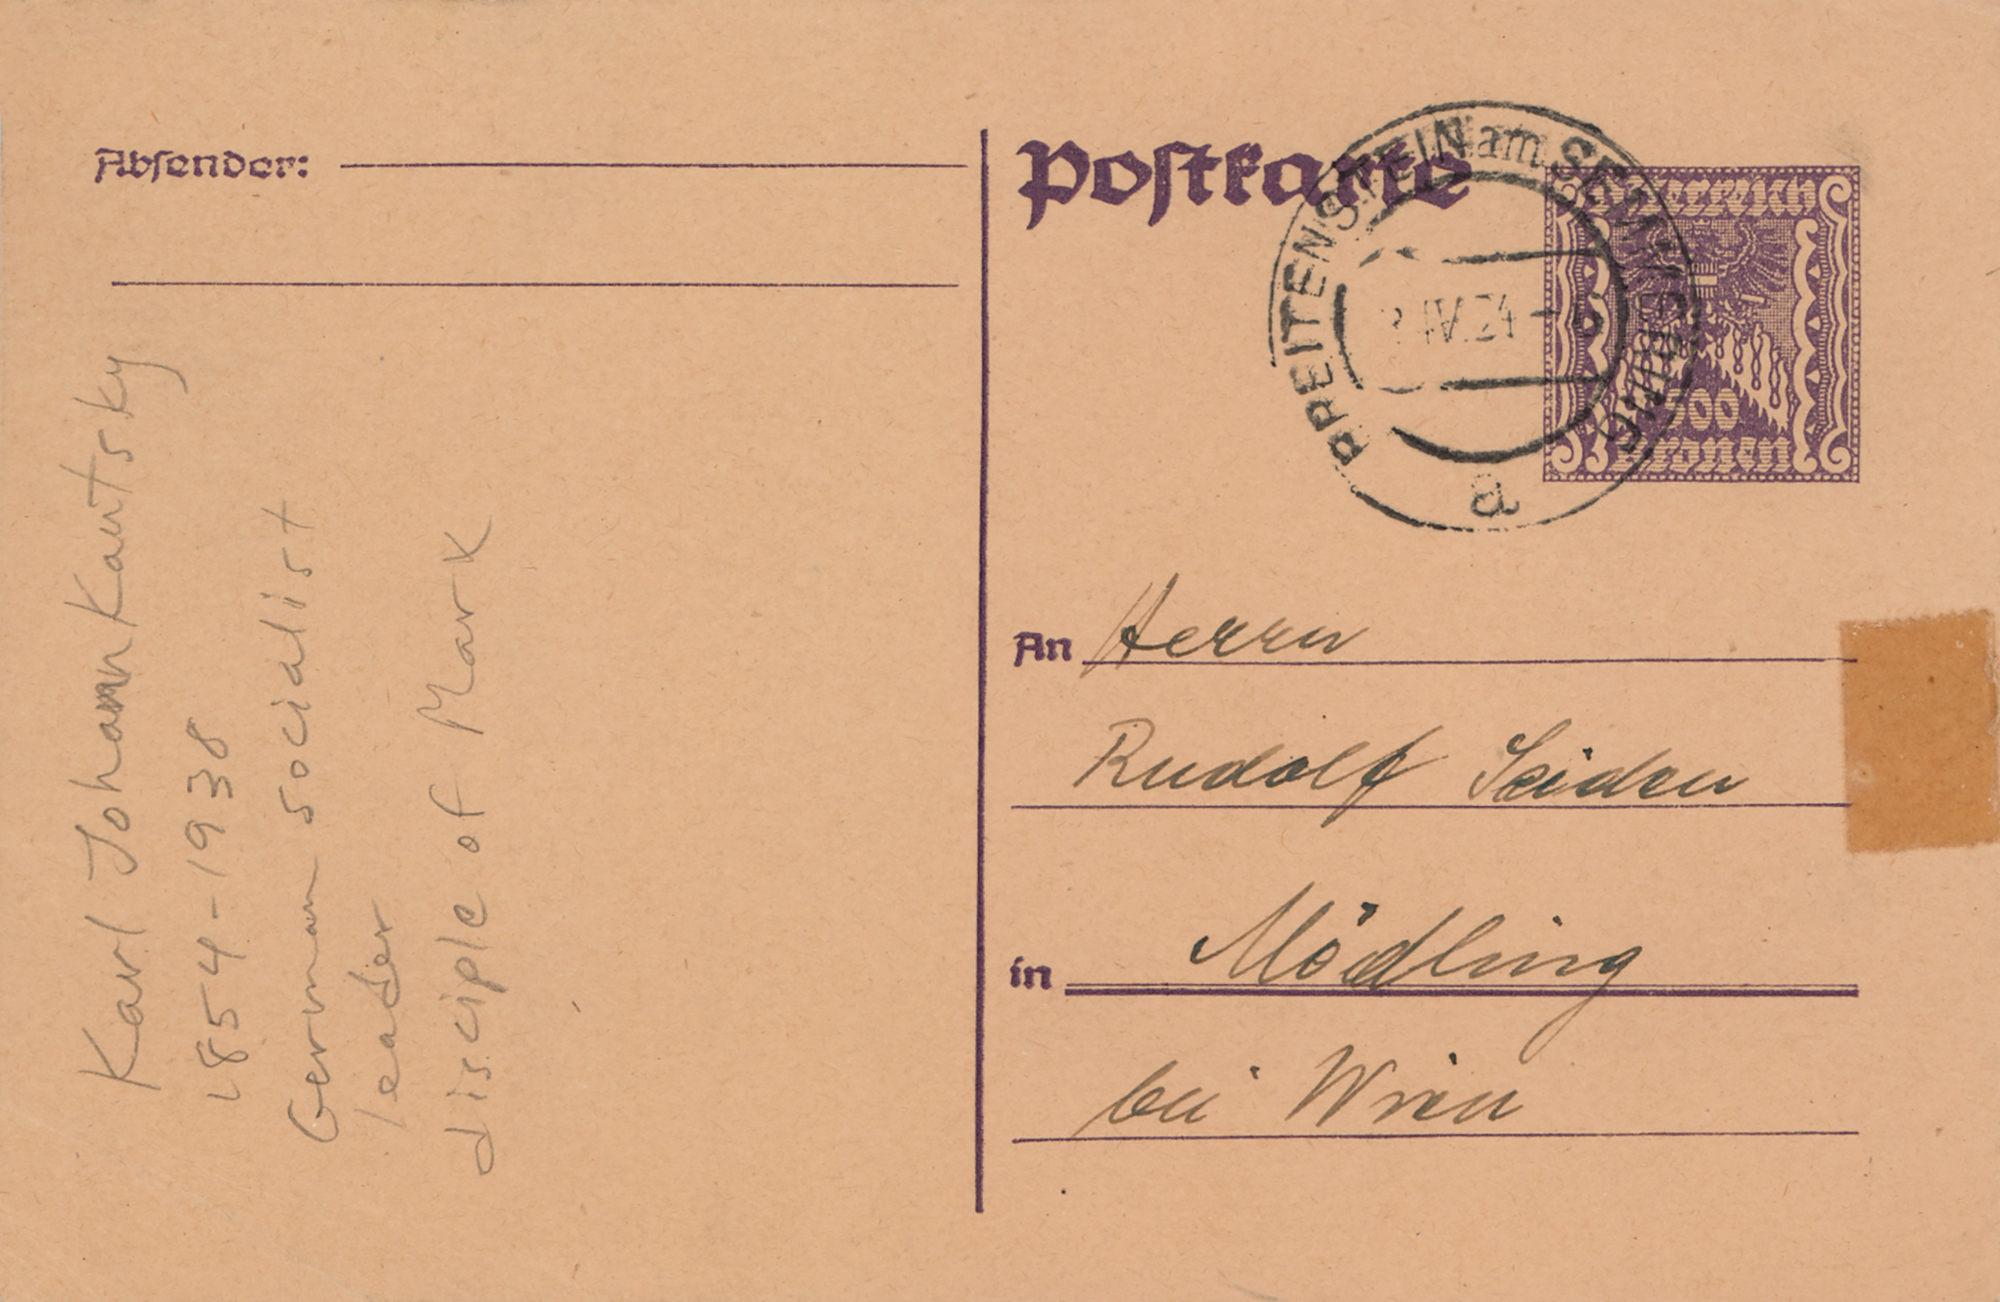 Absender:
Karl Johann Kautsky
1854-1938
German socialist
leader
disciple of Marx
Postkarte
BREITENSTEIN am SEMMERING
IV.24
a
Österreich
500
Kronen
An Herrn
Rudolf Seiden
in Mödling
bei Wien